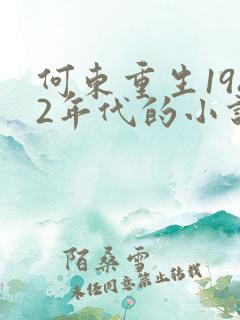 何东重生19
2年代的小
陌桑雪
未经同意禁止转载